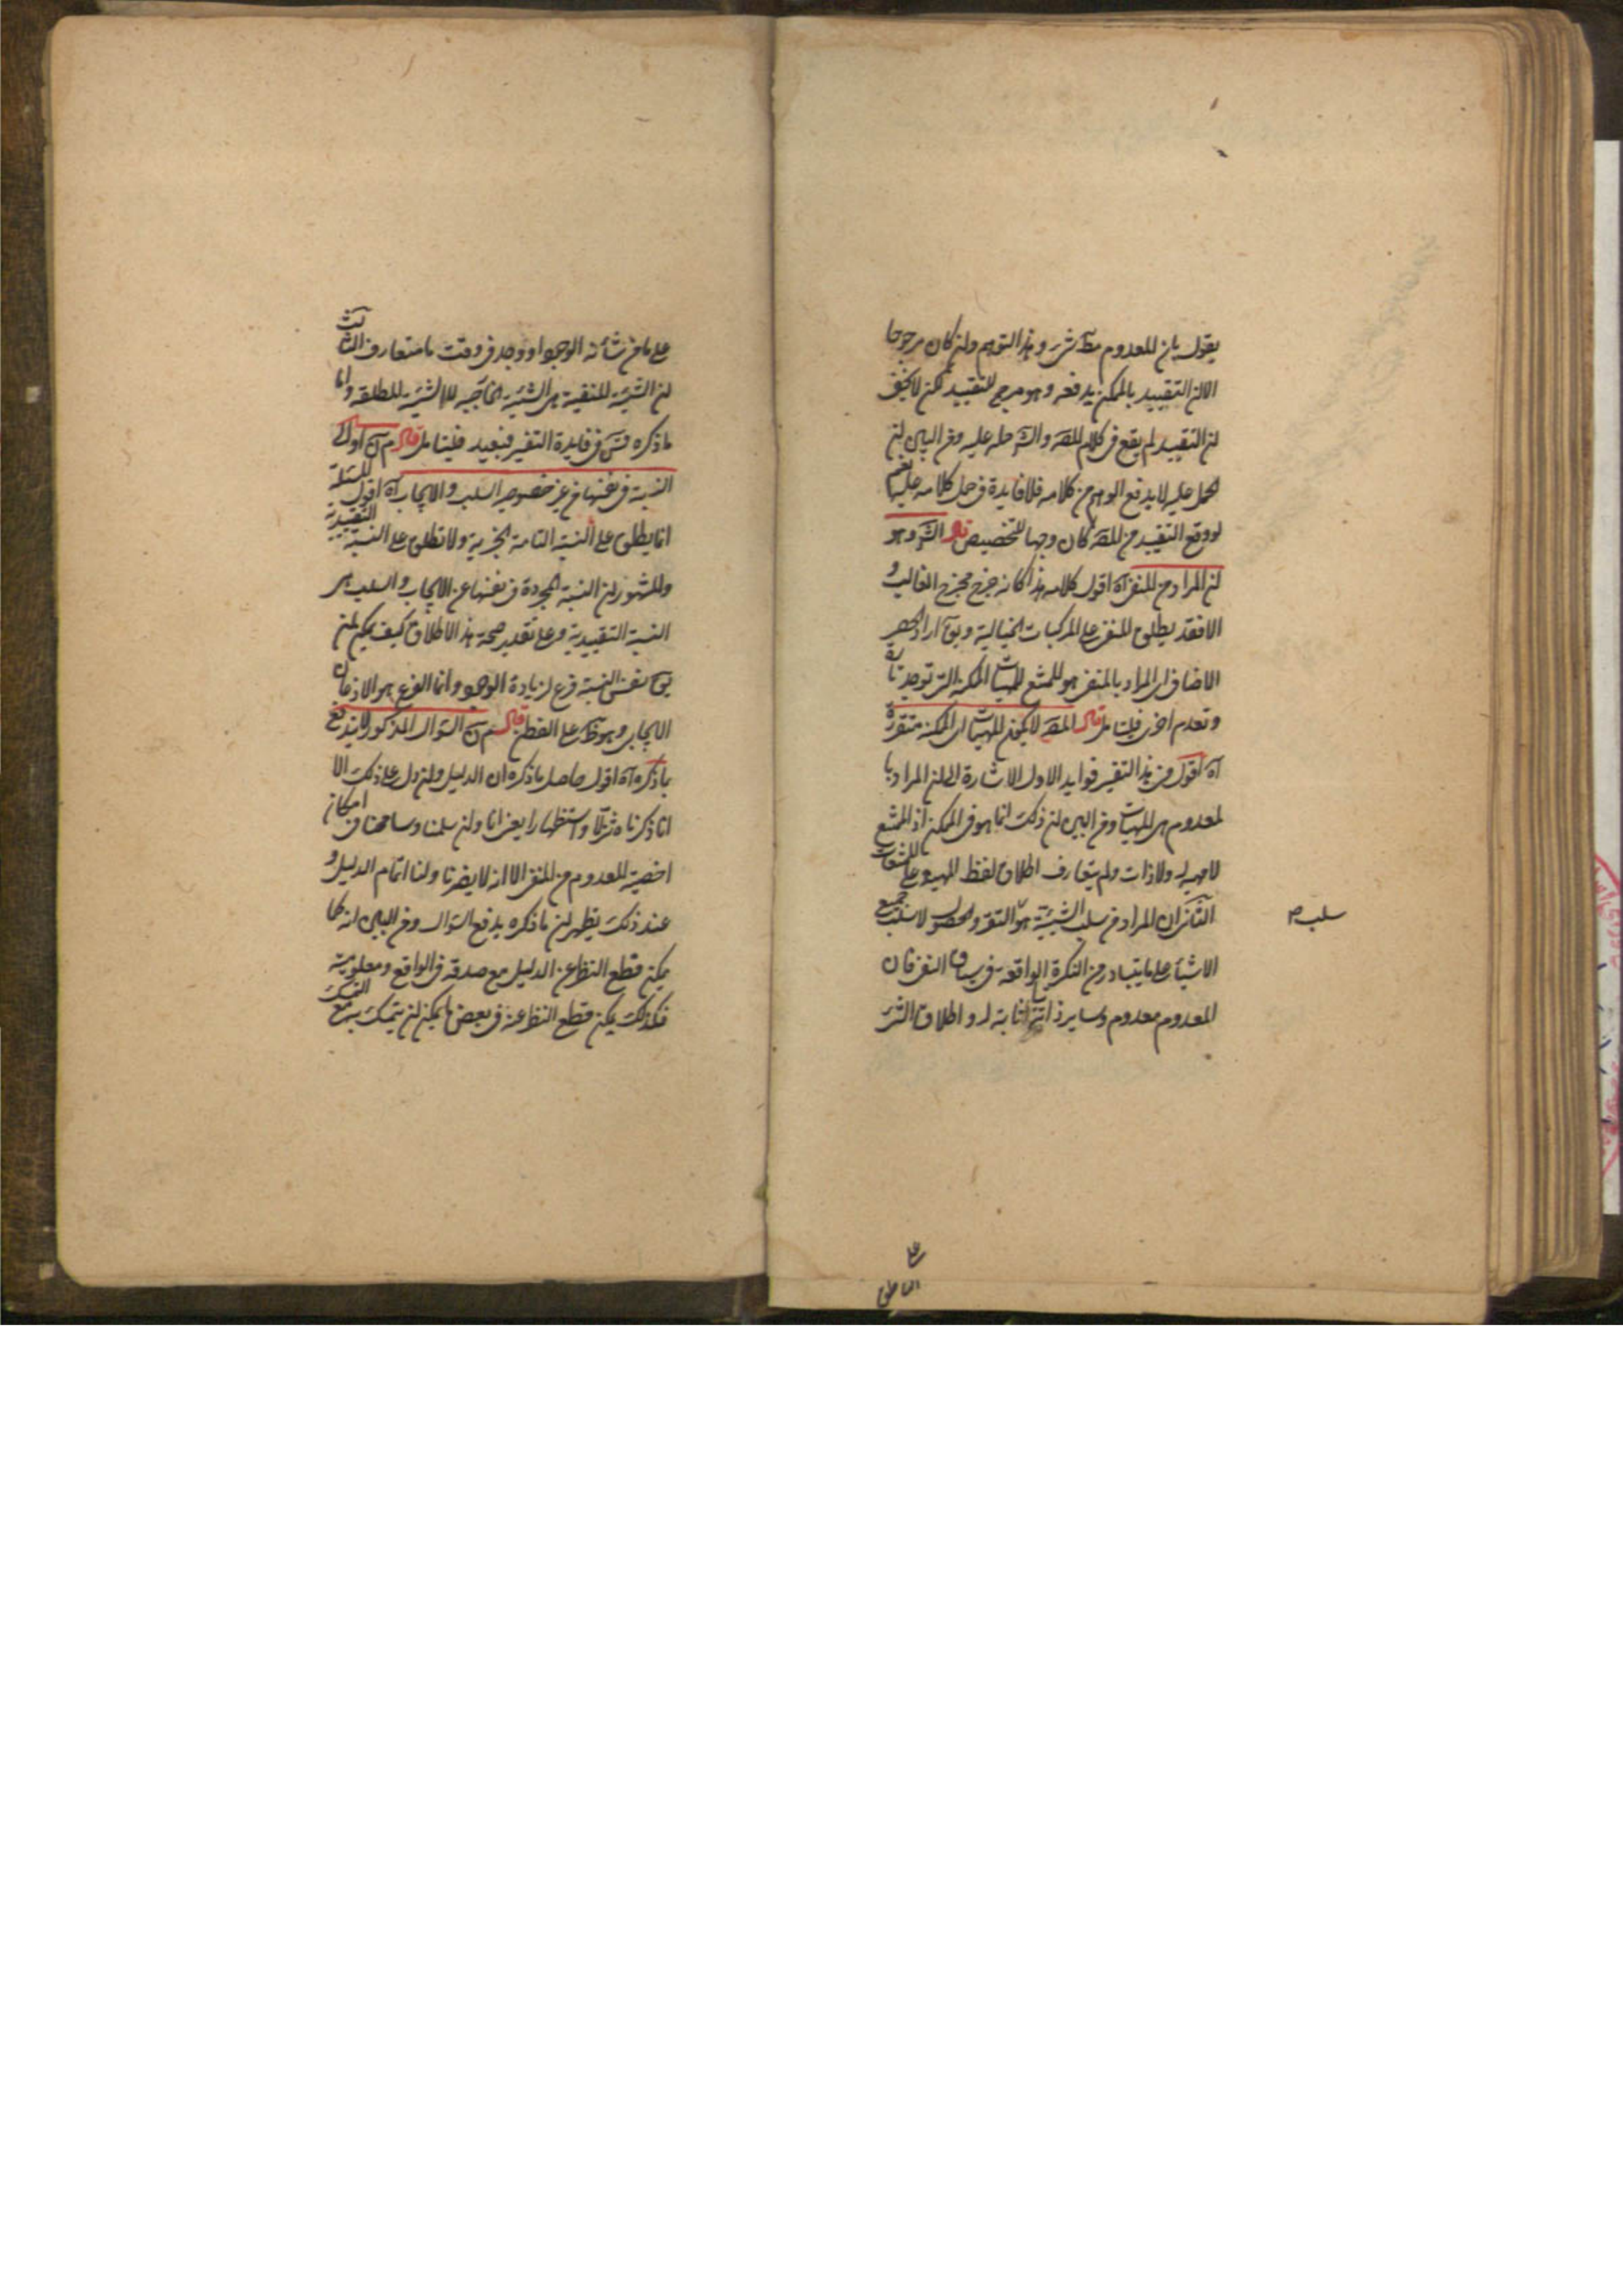 يقول بان المعدوم مط شئ وهذا التوهم وان كان مرجوحا
الا ان التقييد بالممكن يدفعه وهو مرجح للتقييد لكن لا يخفى
ان التقييد لم يقع فى كلام المصـ والشـ حمله عليه ومن البين ان
الحمل عليه لا يدفع الوهم من كلامه فلا فايدة فى حمل كلامه عليه نعم
لو وقع التقييد من المصـ كان وجها للتخصيص قال الشـ وهو
ان المراد من المنفى آه اقول كلامه هذا كانه خرج مخرج الغالب و
الا فقد يطلق المنفى على المركبات الخيالية ويق اراد الحصر
الاضافى اى المراد بالمنفى هو الممتنع لا المهيات الممكنة التى توجد تارة
وتعدم اخرى فليتامل قال المصـ لا يمكن للمهيات الممكنة متقررة
آه اقول فى هذا التفسير فوايد الاول الاشارة الى ان المراد با
لمعدوم هى المهيات ومن البين ان ذلك انما هو فى الممكن اذ الممتنع
لا مهية له ولا ذات ولم يتعارف اطلاق لفظ المهية على الممتنعات
الثانى ان المراد من سلب الشيئية هو التقرر والحصول لا سلب جميع
سلب ص
الاشياء على ما يتبادر من النكرة الواقعة فى سياق النفى فان
المعدوم معدوم وساير ذاتياته ثابتة له واطلاق الشئ
على ما من شأنه الوجود او وجد فى وقت ما متعارف الثالث
ان الشيئية المنفية هى الشيئية الخارجية لا الشيئية المطلقة واما
ما ذكره فى فايدة التفسير فبعيد فليتامل قال اقول
النسبة فى نفسها من غير خصوص السلب والايجاب آه اقول المسئلة
انما يطلق على النسبة التامة الخبرية ولا تطلق على النسبة التقييدية
والمشهور ان النسبة المجردة فى نفسها عن الايجاب والسلب هى
النسبة التقييدية وعلى تقدير صحة هذا الاطلاق كيف يمكن ان
يق نفس النسبة فرع لزيادة الوجود وانما الفرع هو الاذعان
الايجابى وهو ظ على الفطن قال السؤال المذكور لا يندفع
بما ذكره آه اقول حاصل ما ذكره ان الدليل وان دل على ذلك الا
انا ذكرناه تنزلا واستظهارا يعنى انا وان سلمنا وسامحنا فى امكان
اخصية المعدوم من المنفى الا انه لا يضرنا ولنا اتمام الدليل و
عند ذلك يظهر ان ما ذكره يدفع السؤال ومن البين انه كما
يمكن قطع النظر عن الدليل مع صدقه فى الواقع ومعلوميته
فكذلك يمكن قطع النظر عنه فى بعض ما يمكن ان يتمسك به مع التمسك